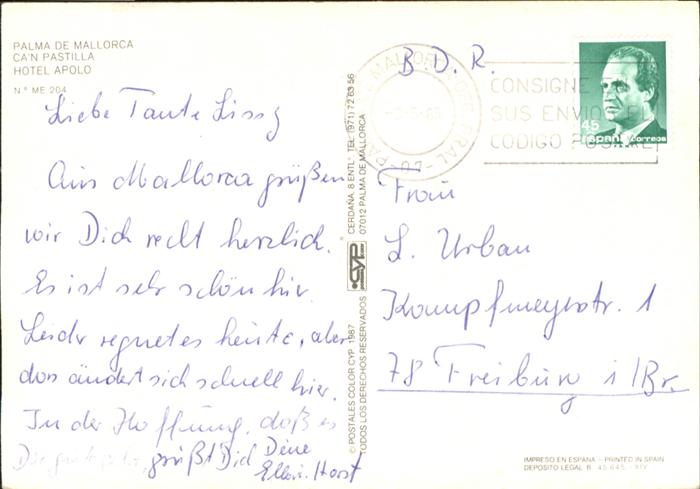 PALMA DE MALLORCA
CA'N PASTILLA
HOTEL APOLO
N.º ME 204
Liebe Tante Lissy
Aus Mallorca grüßen
wir Dich recht herzlich.
Es ist sehr schön hier.
Leider regnet es heute, aber
das ändert sich schnell hier.
In der Hoffnung, daß es
Dir geht, grüßt Dich Deine
Elli u. Horst
© POSTALES COLOR CYP, 1987
TODOS LOS DERECHOS RESERVADOS
CYP
CERDAÑA, 8 ENTLº TEL. (971) 72 63 56
07012 PALMA DE MALLORCA
B. D. R.
CONSIGNE
SUS ENVIO
CODIGO POSTAL
45
ESPAÑA correos
Frau
L. Urban
Kampfmeyerstr. 1
78 Freiburg i/Br.
IMPRESO EN ESPAÑA - PRINTED IN SPAIN
DEPOSITO LEGAL B. 45.645 - XIV